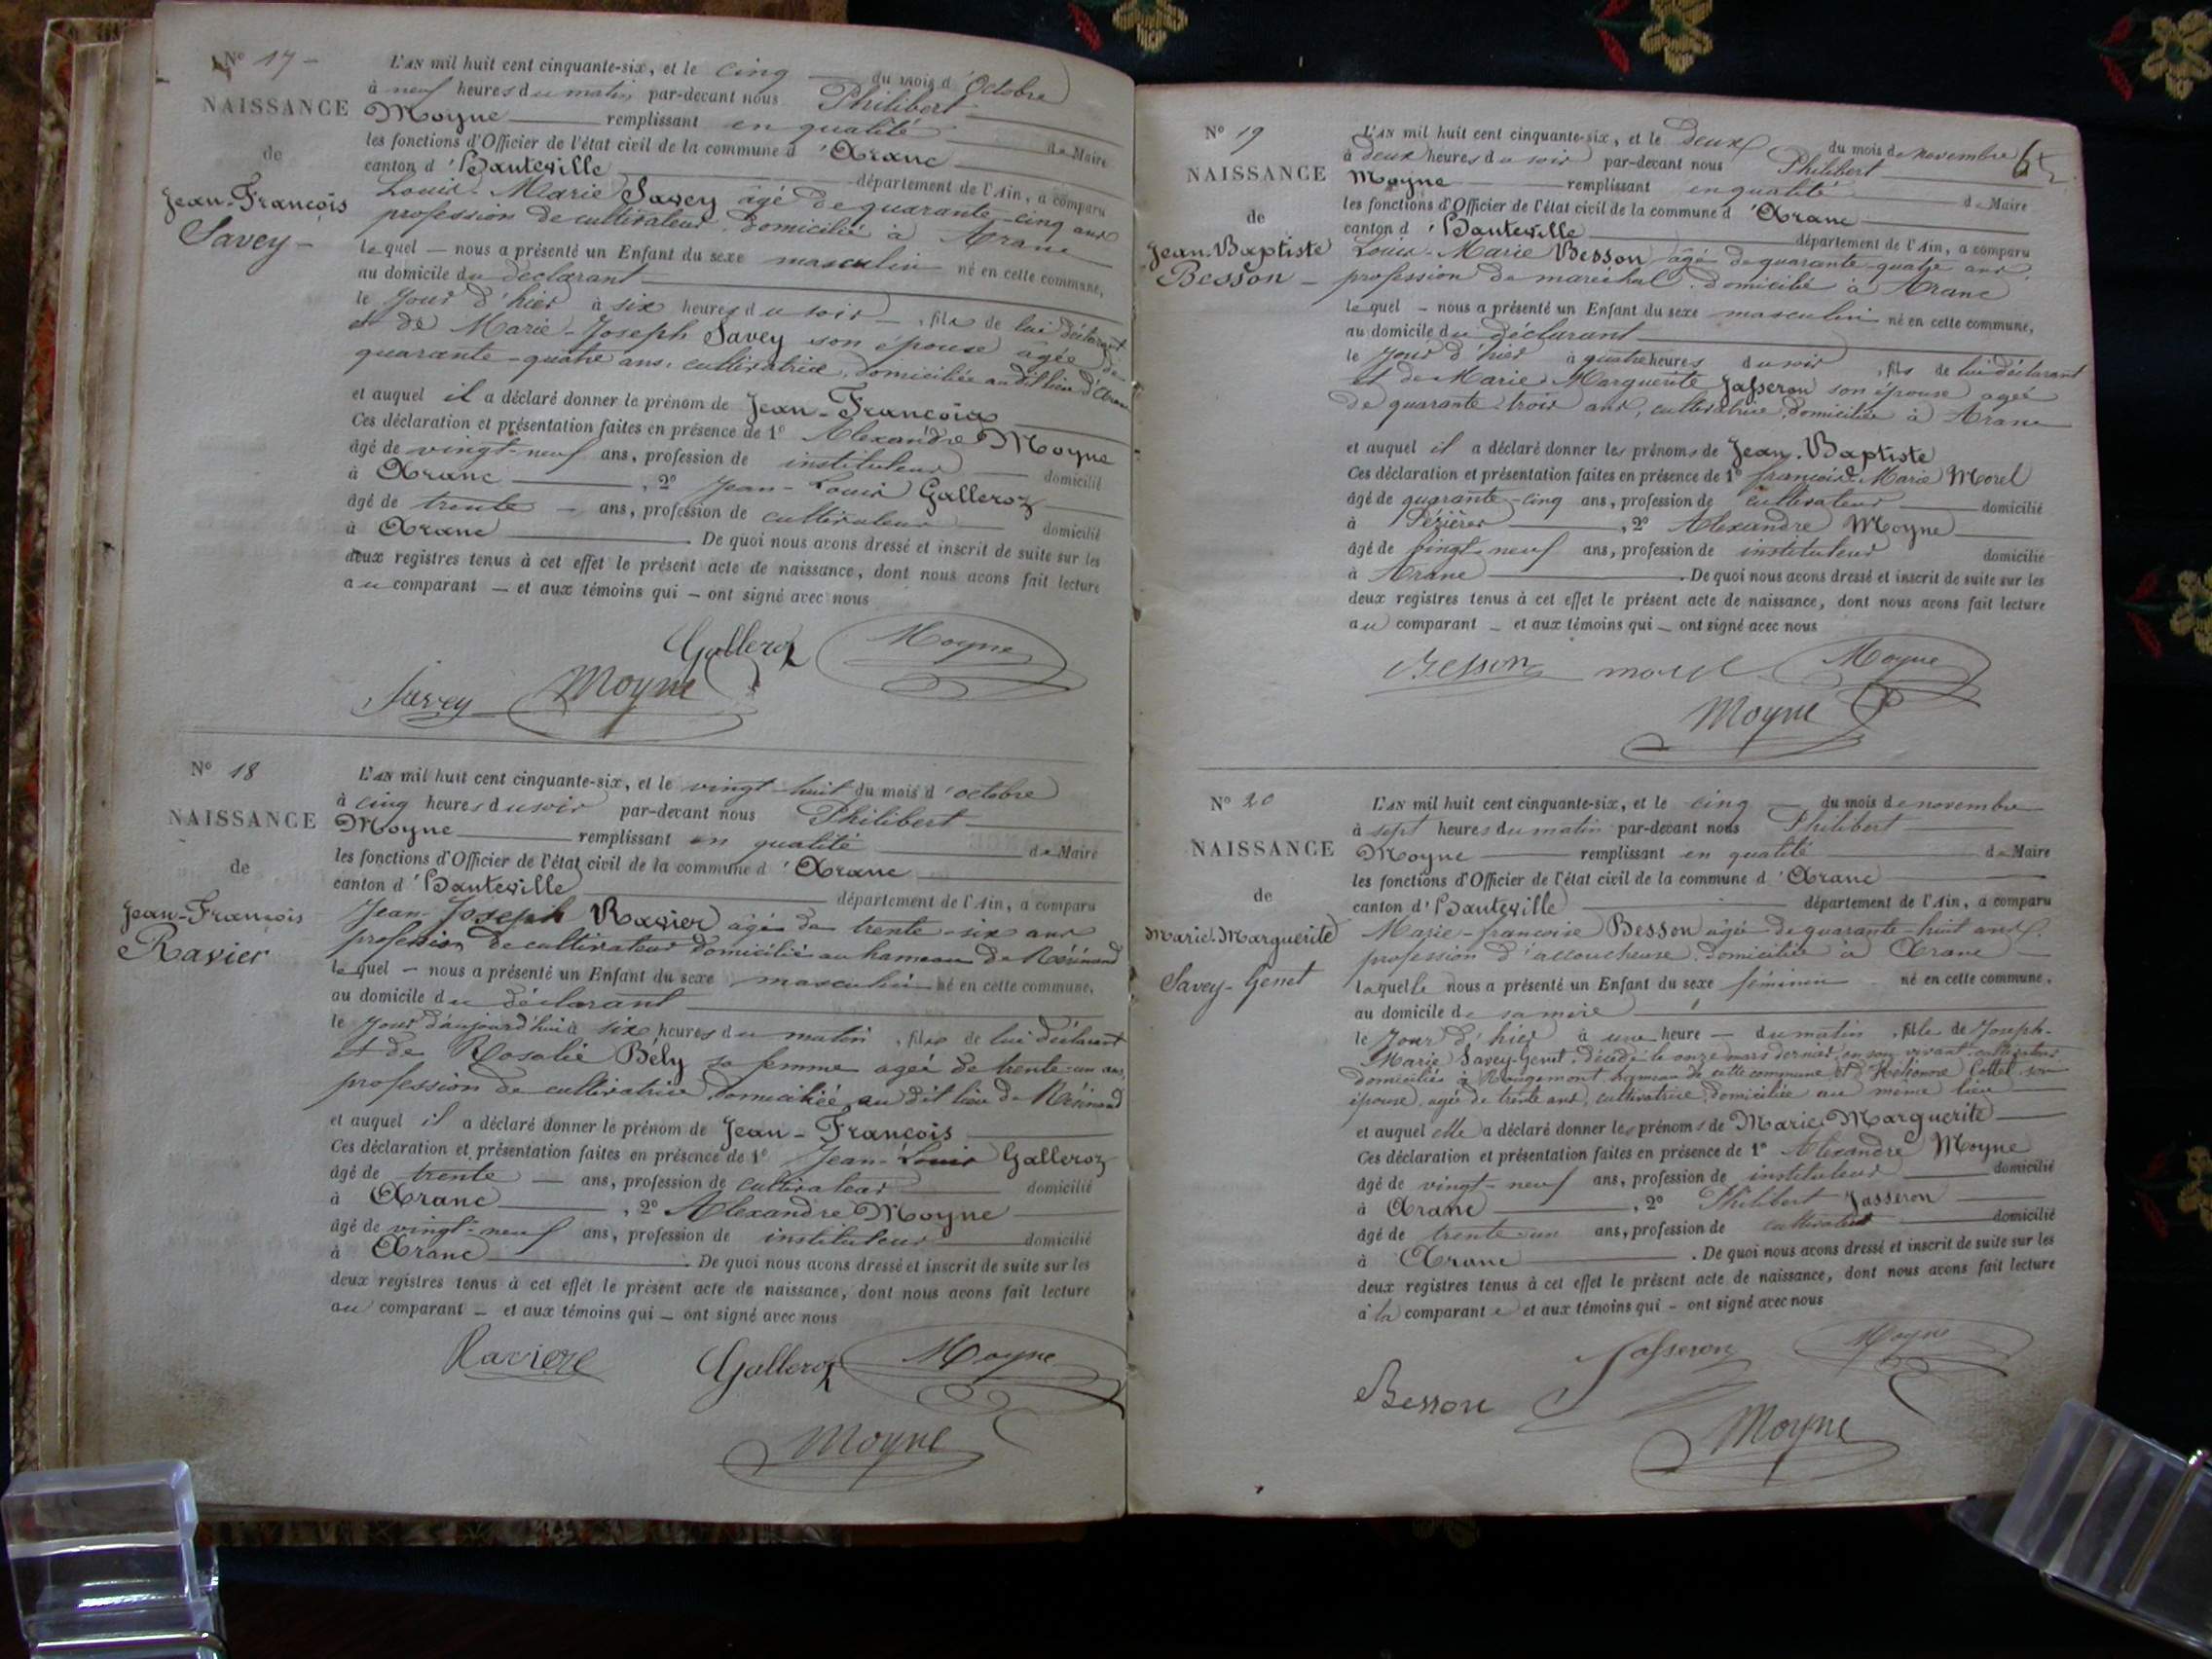 N° 17 -
NAISSANCE
de
Jean-François
Savey -
L'AN mil huit cent cinquante-six, et le cinq du mois d'Octobre
à neuf heures du matin par-devant nous Philibert
Moyne remplissant en qualité de Maire
les fonctions d'Officier de l'état civil de la commune d'Aranc
canton d'Hauteville département de l'Ain, a comparu
Louis-Marie Savey âgé de quarante-cinq ans
profession de cultivateur, domicilié à Aranc
lequel — nous a présenté un Enfant du sexe masculin né en cette commune,
au domicile du déclarant
le jour d'hier à six heures du soir, fils de lui déclarant
et de Marie-Joseph Savey son épouse âgée de
quarante-quatre ans, cultivatrice, domiciliée audit lieu d'Aranc
et auquel il a déclaré donner le prénom de Jean-François
Ces déclaration et présentation faites en présence de 1° Alexandre Moyne
âgé de vingt-neuf ans, profession de instituteur domicilié
à Aranc, 2° Jean-Louis Galleroz
âgé de trente - ans, profession de cultivateur domicilié
à Aranc. De quoi nous avons dressé et inscrit de suite sur les
deux registres tenus à cet effet le présent acte de naissance, dont nous avons fait lecture
au comparant — et aux témoins qui — ont signé avec nous
Galleroz Moyne
Savey Moyne
N° 18
NAISSANCE
de
Jean-François
Ravier
L'AN mil huit cent cinquante-six, et le vingt-huit du mois d'octobre
à cinq heures du soir par-devant nous Philibert
Moyne remplissant en qualité de Maire
les fonctions d'Officier de l'état civil de la commune d'Aranc
canton d'Hauteville département de l'Ain, a comparu
Jean-Joseph Ravier âgé de trente-six ans
profession de cultivateur domicilié au hameau de Résinand
lequel — nous a présenté un Enfant du sexe masculin né en cette commune,
au domicile du déclarant
le jour d'aujourd'hui à six heures du matin, fils de lui déclarant
et de Rosalie Bély sa femme agée de trente-un ans,
profession de cultivatrice, domiciliée au dit lieu de Résinand
et auquel il a déclaré donner le prénom de Jean-François
Ces déclaration et présentation faites en présence de 1° Jean-Louis Galleroz
âgé de trente — ans, profession de cultivateur domicilié
à Aranc, 2° Alexandre Moyne
âgé de vingt-neuf ans, profession de instituteur domicilié
à Aranc. De quoi nous avons dressé et inscrit de suite sur les
deux registres tenus à cet effet le présent acte de naissance, dont nous avons fait lecture
au comparant — et aux témoins qui — ont signé avec nous
Galleroz Moyne
Moyne
N° 19
NAISSANCE
de
Jean-Baptiste
Besson -
L'AN mil huit cent cinquante-six, et le deux du mois de novembre
à deux heures du soir par-devant nous Philibert
Moyne remplissant en qualité de Maire
les fonctions d'Officier de l'état civil de la commune d'Aranc
canton d'Hauteville département de l'Ain, a comparu
Louis-Marie Besson âgé de quarante-quatre ans
profession de maréchal, domicilié à Aranc
lequel - nous a présenté un Enfant du sexe masculin né en cette commune,
au domicile du déclarant
le jour d'hier à quatre heures du soir, fils de lui déclarant
et de Marie Marguerite Jasseron son épouse agée
de quarante-trois ans, cultivatrice, domiciliée à Aranc
et auquel il a déclaré donner les prénoms de Jean-Baptiste
Ces déclaration et présentation faites en présence de 1° François-Marie Morel
âgé de quarante-cinq ans, profession de cultivateur domicilié
à Pézières, 2° Alexandre Moyne
âgé de vingt-neuf ans, profession de instituteur domicilié
à Aranc. De quoi nous avons dressé et inscrit de suite sur les
deux registres tenus à cet effet le présent acte de naissance, dont nous avons fait lecture
au comparant — et aux témoins qui — ont signé avec nous
Besson morel Moyne
Moyne
N° 20
NAISSANCE
de
Marie-Marguerite
Savey-Genet
L'AN mil huit cent cinquante-six, et le cinq du mois de novembre
à sept heures du matin par-devant nous Philibert
Moyne remplissant en qualité de Maire
les fonctions d'Officier de l'état civil de la commune d'Aranc
canton d'Hauteville département de l'Ain, a comparu
Marie-françoise Besson agée de quarante-huit ans
profession d'accoucheuse, domiciliée à Aranc
laquelle nous a présenté un Enfant du sexe féminin né en cette commune,
au domicile de sa mère
le jour d'hier à une heure — du matin, fille de Joseph-
Marie Savey-Genet, décédé le onze mars dernier, en son vivant cultivateur
domicilié à Rougemont, hameau de cette commune et d' Cottel son
épouse, agée de trente ans, cultivatrice, domiciliée au même lieu
et auquel elle a déclaré donner les prénoms de Marie-Marguerite
Ces déclaration et présentation faites en présence de 1° Alexandre Moyne
âgé de vingt-neuf ans, profession de instituteur domicilié
à Aranc, 2° Philibert Jasseron
âgé de trente-un ans, profession de cultivateur domicilié
à Aranc. De quoi nous avons dressé et inscrit de suite sur les
deux registres tenus à cet effet le présent acte de naissance, dont nous avons fait lecture
à la comparante et aux témoins qui - ont signé avec nous
Jasseron Moyne
Besson Moyne